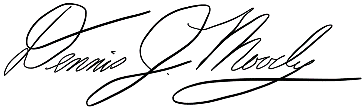 Dennis J. Moody